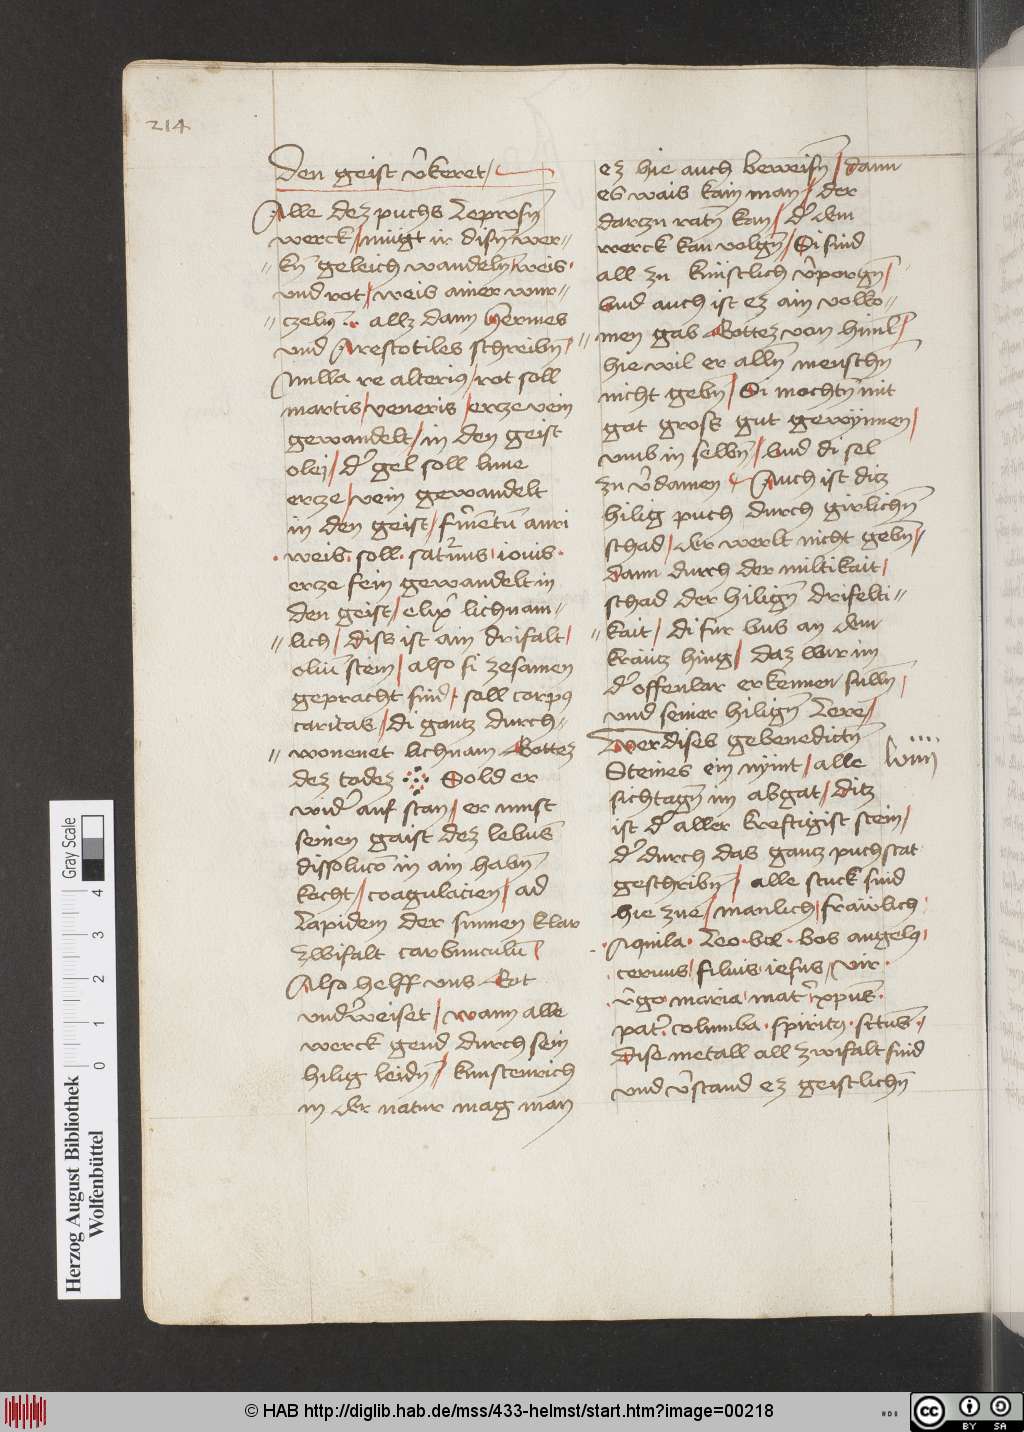 214
Den geist v̂keret /
Alle dez puchs Leprosn̄
werck / mügt ir disn̄ wer=
kn̄ geleich wandeln / weis
vnd rot / weis ainer wur=
czeln̄ allz dann hermes
vnd Arestotiles schreibn̄
Nulla re alterius / rot soll
martis / veneris / ercze vein
gewandelt / in den geist
olej / d͛ gel soll lune
ercze / vein gewandelt
in den geist / f͛mētū auri
weis soll saturnus iouis
erze fein gewandelt in
den geist / elix͛ lichnam=
lich / diss ist ain drifalt /
oliū stein / also si zesamen
gepracht sind / soll corpus
caritas / di gantz durch=
wonenet lichnam Gottez
dez todez Sold er
wid͛ auf stan / er must
seinen gaist dez lebns̄
dissolucō in ain habn̄
kocht / coagulacien / ad
Lapidem der sunnen klar
zwifalt carbunculū /
Also helff vns Got
vnd͛weiset / wann alle
werck gend durch sein
hilig leidn̄ / kunstenrich
in der natur mag man
ez hie auch beweisn̄ / dann
es wais kain man / der
darzu ratn̄ kan / d͛ dem
werck kan volgn̄ / Si sind
all zu künstlich v͛porgn̄ /
vnd auch ist ez ain volko=
men gab Gottez von himl /
hie wil er alln̄ menschn̄
nicht gebn̄ / Si mochtn̄ mit
got gross gut gewÿnnen /
vmb in selbn̄ / vnd di sel
zu v͛damen Auch ist ditz
hilig puch durch girlichn̄
schad / der werlt nicht gebn̄ /
dann durch der miltikait /
schad der hilign̄ drifelti=
kait / di fur vns an dem
kräutz hing / daz wir im
d͛ offenbar erkennen sulln̄ /
vnd seiner hilign̄ Lere /
Wer dises gebenedictn̄
Steines ein nÿmt / alle
sichtagn̄ im abgat / ditz
ist d͛ aller kreftigist stein /
d͛ durch das gantz puch stat
geschribn̄ / alle stuck sind
hie zue / manlich / fräwlich
Aquila Leo bos angelus
ceruus / filius iesus / vir
v͛go maria mat͛ xp̄us
pat͛ columba spiritus sctus
Dise metall all zwifalt sind
vnd v͛stand ez geistlichn̄
Herzog August Bibliothek
Wolfenbüttel
0 1 2 3 4
Gray Scale
© HAB http://diglib.hab.de/mss/433-helmst/start.htm?image=00218
cc BY SA